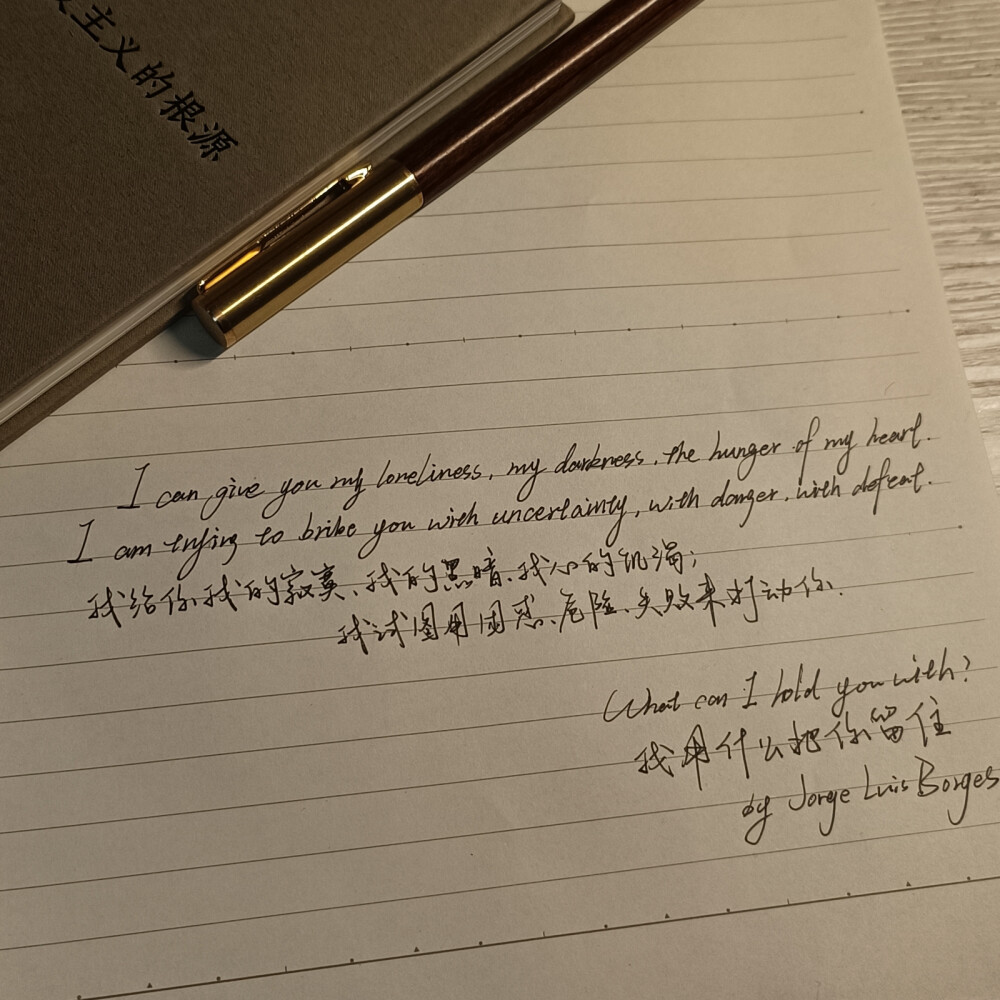 主义的根源
I can give you my loneliness, my darkness, the hunger of my heart.
I am trying to bribe you with uncertainty, with danger, with defeat.
我给你我的寂寞、我的黑暗、我心的饥渴;
我试图用困惑、危险、失败来打动你.
What can I hold you with?
我用什么把你留住
by Jorge Luis Borges